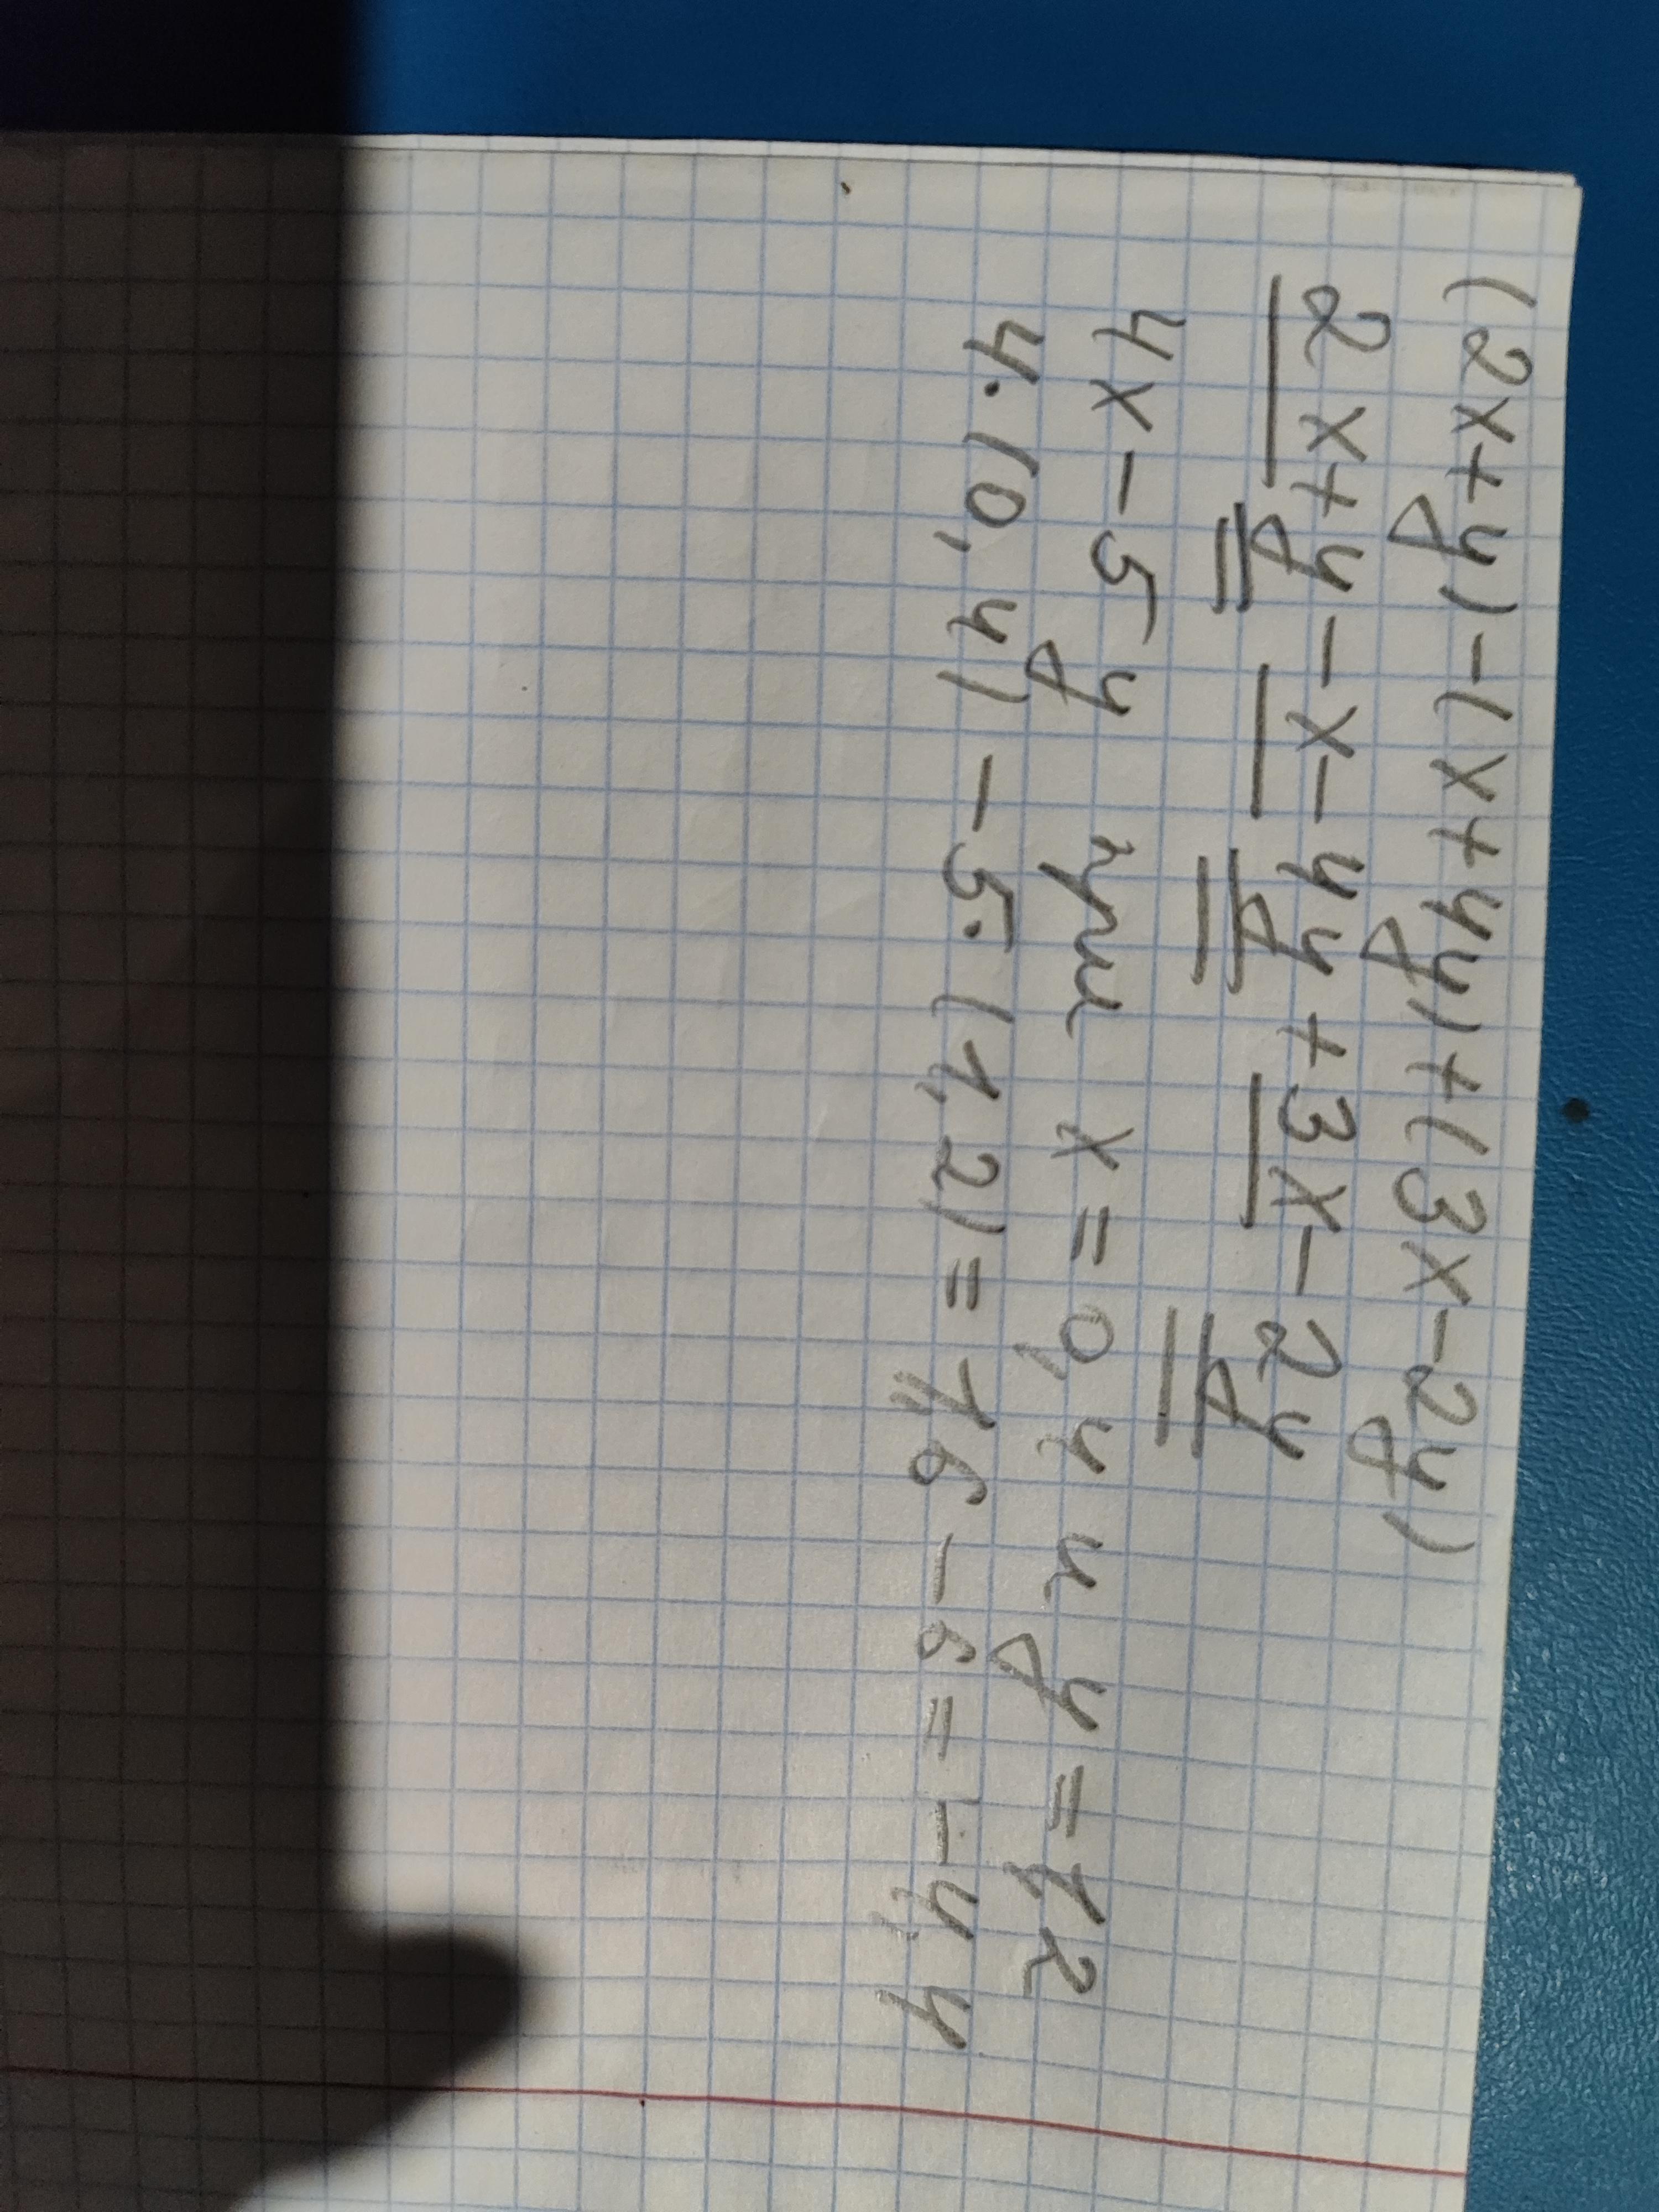 (2x+y)-(x+4y)+(3x-2y)
2x+y-x-4y+3x-2y
4x-5y при x=0,4 и y=1,2
4·(0,4)-5·(1,2)=1,6-6=-4,4